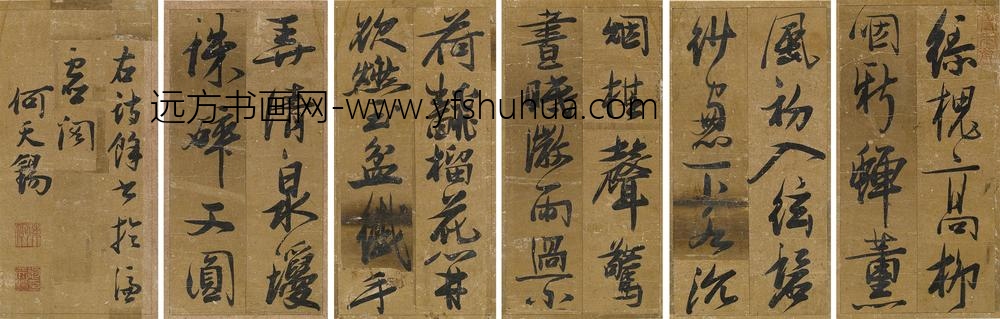 綠槐高柳
咽新蟬薰
風初入絃碧
紗窗下水沉
烟棋聲驚
晝眠微雨過小
荷飜榴花開
欲燃玉盆纖手
弄清泉瓊
珠碎又圓
右詩餘書於
虛閣
何天錫
远方书画网-www.yfshuhua.com